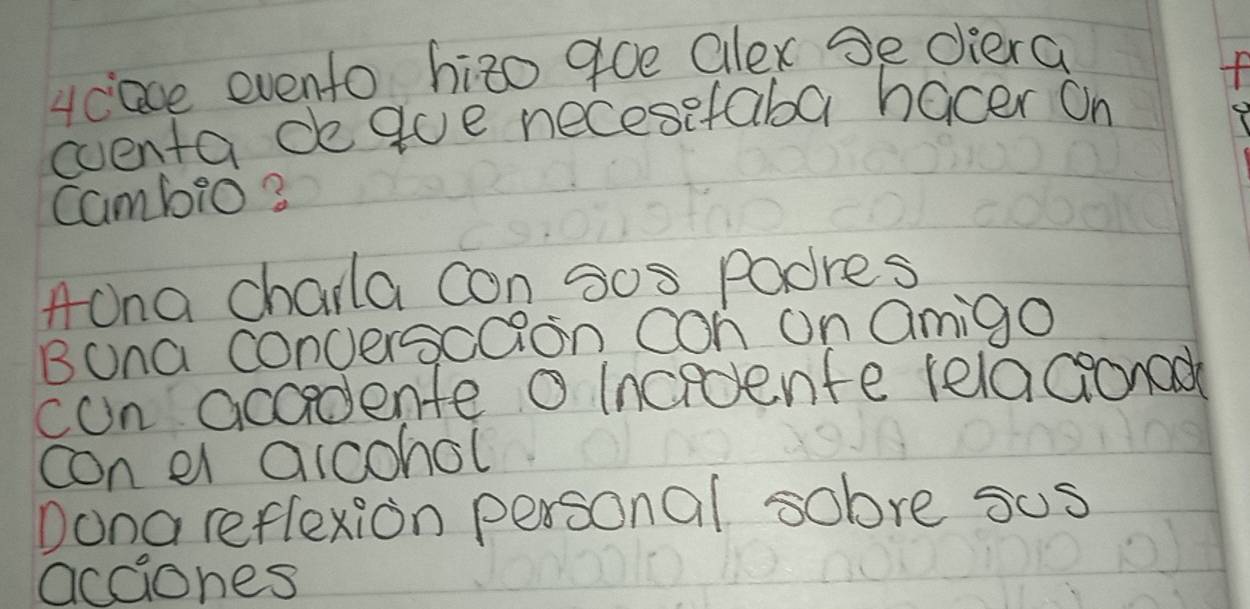 4¿Que evento hizo que Alex se diera
cuenta de que necesitaba hacer un
cambio?
A una charla con sus padres
B una converscaión con un amigo
C un accidente o incidente relacionado
con el alcohol
D una reflexión personal sobre sus
acciones